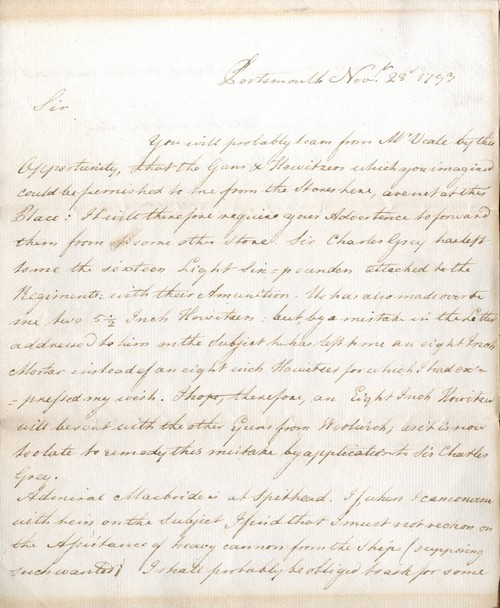 Portsmouth Novr. 28th 1793
Sir
You will probably learn from Mr Veale by this
Opportunity, that the Guns & Howitzers which you imagined
could be furnished to me from the Stores here, are not at this
Place: It will therefore require your Advertence to forward
them from some other Store. Sir Charles Grey has left
to me the sixteen Light Six=pounders attached to the
Regiments: with their Amunition. He has also made over to
me two 5½ Inch Howitzers: but, by a mistake in the Letter
addressed to him on the Subject he has left me an eight Inch
Mortar instead of an eight inch Howitzer for which I had ex=
=pressed my wish. I hope, therefore, an Eight Inch Howitzer
will be sent with the other Guns from Woolwich; as it is now
too late to remedy this mistake by application to Sir Charles
Grey.
Admiral Macbride is at Spithead. If, when I can converse
with him on the Subject I find that I must not reckon on
the Assistance of heavy cannon from the Ships (supposing
such wanted) I shall probably be obliged to ask for some